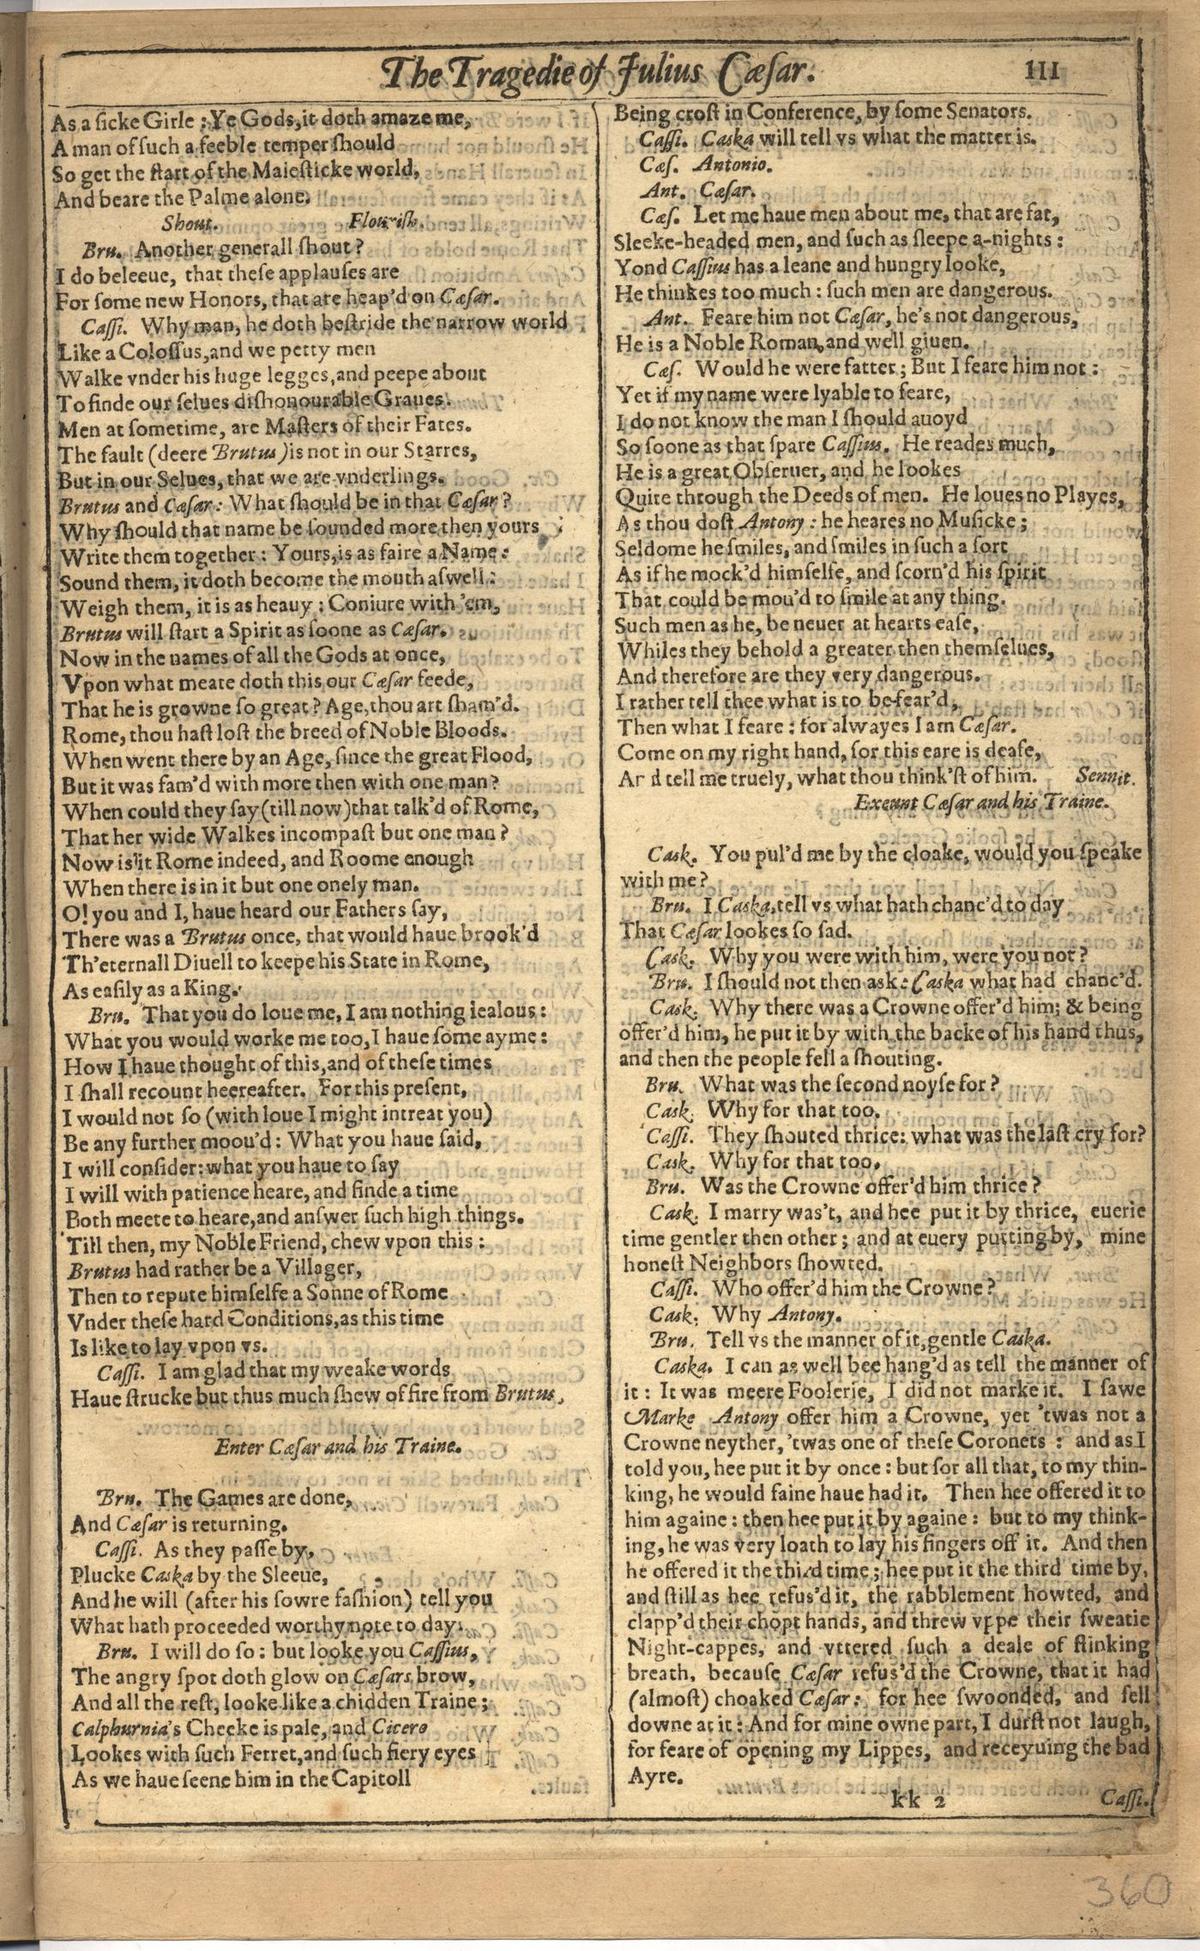 The Tragedie of Julius Cæſar. 111
As a ſicke Girle: Ye Gods, it doth amaze me,
A man of ſuch a feeble temper ſhould
So get the ſtart of the Maieſticke world,
And beare the Palme alone.
Shout. Flouriſh.
Bru. Another generall ſhout?
I do beleeue, that theſe applauſes are
For ſome new Honors, that are heap'd on Cæſar.
Caſſi. Why man, he doth beſtride the narrow world
Like a Coloſſus, and we petty men
Walke vnder his huge legges, and peepe about
To finde our ſelues diſhonourable Graues.
Men at ſometime, are Maſters of their Fates.
The fault (deere Brutus) is not in our Starres,
But in our Selues, that we are vnderlings.
Brutus and Cæſar: What ſhould be in that Cæſar?
Why ſhould that name be ſounded more then yours
Write them together: Yours, is as faire a Name:
Sound them, it doth become the mouth aſwell:
Weigh them, it is as heauy: Coniure with 'em,
Brutus will ſtart a Spirit as ſoone as Cæſar.
Now in the names of all the Gods at once,
Vpon what meate doth this our Cæſar feede,
That he is growne ſo great? Age, thou art ſham'd.
Rome, thou haſt loſt the breed of Noble Bloods.
When went there by an Age, ſince the great Flood,
But it was fam'd with more then with one man?
When could they ſay (till now) that talk'd of Rome,
That her wide Walkes incompaſt but one man?
Now is it Rome indeed, and Roome enough
When there is in it but one onely man.
O! you and I, haue heard our Fathers ſay,
There was a Brutus once, that would haue brook'd
Th'eternall Diuell to keepe his State in Rome,
As eaſily as a King.
Bru. That you do loue me, I am nothing iealous:
What you would worke me too, I haue ſome ayme:
How I haue thought of this, and of theſe times
I ſhall recount heereafter. For this preſent,
I would not ſo (with loue I might intreat you)
Be any further moou'd: What you haue ſaid,
I will conſider: what you haue to ſay
I will with patience heare, and finde a time
Both meete to heare, and anſwer ſuch high things.
Till then, my Noble Friend, chew vpon this:
Brutus had rather be a Villager,
Then to repute himſelfe a Sonne of Rome
Vnder theſe hard Conditions, as this time
Is like to lay vpon vs.
Caſſi. I am glad that my weake words
Haue ſtrucke but thus much ſhew of fire from Brutus,
Enter Cæſar and his Traine.
Bru. The Games are done,
And Cæſar is returning.
Caſſi. As they paſſe by,
Plucke Caska by the Sleeue,
And he will (after his ſowre faſhion) tell you
What hath proceeded worthy note to day.
Bru. I will do ſo: but looke you Caſſius,
The angry ſpot doth glow on Cæſars brow,
And all the reſt, looke like a chidden Traine;
Calphurnia's Cheeke is pale, and Cicero
Lookes with ſuch Ferret, and ſuch fiery eyes
As we haue ſeene him in the Capitoll
Being croſt in Conference, by ſome Senators.
Caſſi. Caska will tell vs what the matter is.
Cæſ. Antonio.
Ant. Cæſar.
Cæſ. Let me haue men about me, that are fat,
Sleeke-headed men, and ſuch as ſleepe a-nights:
Yond Caſſius has a leane and hungry looke,
He thinkes too much: ſuch men are dangerous.
Ant. Feare him not Cæſar, he's not dangerous,
He is a Noble Roman, and well giuen.
Cæſ. Would he were fatter; But I feare him not:
Yet if my name were lyable to feare,
I do not know the man I ſhould auoyd
So ſoone as that ſpare Caſſius. He reades much,
He is a great Obſeruer, and he lookes
Quite through the Deeds of men. He loues no Playes,
As thou doſt Antony: he heares no Muſicke;
Seldome he ſmiles, and ſmiles in ſuch a ſort
As if he mock'd himſelfe, and ſcorn'd his ſpirit
That could be mou'd to ſmile at any thing.
Such men as he, be neuer at hearts eaſe,
Whiles they behold a greater then themſelues,
And therefore are they very dangerous.
I rather tell thee what is to be fear'd,
Then what I feare: for alwayes I am Cæſar.
Come on my right hand, for this eare is deafe,
And tell me truely, what thou think'ſt of him. Sennit.
Exeunt Cæſar and his Traine.
Cask. You pul'd me by the cloake, would you ſpeake
with me?
Bru. I Caska, tell vs what hath chanc'd to day
That Cæſar lookes ſo ſad.
Cask. Why you were with him, were you not?
Bru. I ſhould not then ask Caska what had chanc'd.
Cask. Why there was a Crowne offer'd him; & being
offer'd him, he put it by with the backe of his hand thus,
and then the people fell a ſhouting.
Bru. What was the ſecond noyſe for?
Cask. Why for that too.
Caſſi. They ſhouted thrice: what was the laſt cry for?
Cask. Why for that too.
Bru. Was the Crowne offer'd him thrice?
Cask. I marry was't, and hee put it by thrice, euerie
time gentler then other; and at euery putting by, mine
honeſt Neighbors ſhowted.
Caſſi. Who offer'd him the Crowne?
Cask. Why Antony.
Bru. Tell vs the manner of it, gentle Caska.
Caska. I can as well bee hang'd as tell the manner of
it: It was meere Foolerie, I did not marke it. I ſawe
Marke Antony offer him a Crowne, yet 'twas not a
Crowne neyther, 'twas one of theſe Coronets: and as I
told you, hee put it by once: but for all that, to my thin-
king, he would faine haue had it. Then hee offered it to
him againe: then hee put it by againe: but to my think-
ing, he was very loath to lay his fingers off it. And then
he offered it the third time; hee put it the third time by,
and ſtill as hee refus'd it, the rabblement howted, and
clapp'd their chopt hands, and threw vppe their ſweatie
Night-cappes, and vttered ſuch a deale of ſtinking
breath, becauſe Cæſar refus'd the Crowne, that it had
(almoſt) choaked Cæſar: for hee ſwoonded, and fell
downe at it: And for mine owne part, I durſt not laugh,
for feare of opening my Lippes, and receyuing the bad
Ayre.
kk 2 Caſſi.
360